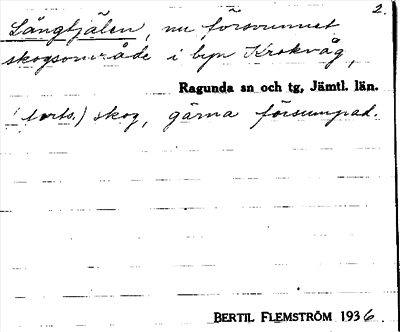 2.
Långtjälen, nu försvunnet
skogsområde i byn Krokvåg,
Ragunda sn och tg, Jämtl. län.
(forts.) skog, gärna försumpad.
BERTIL FLEMSTRÖM 1936.